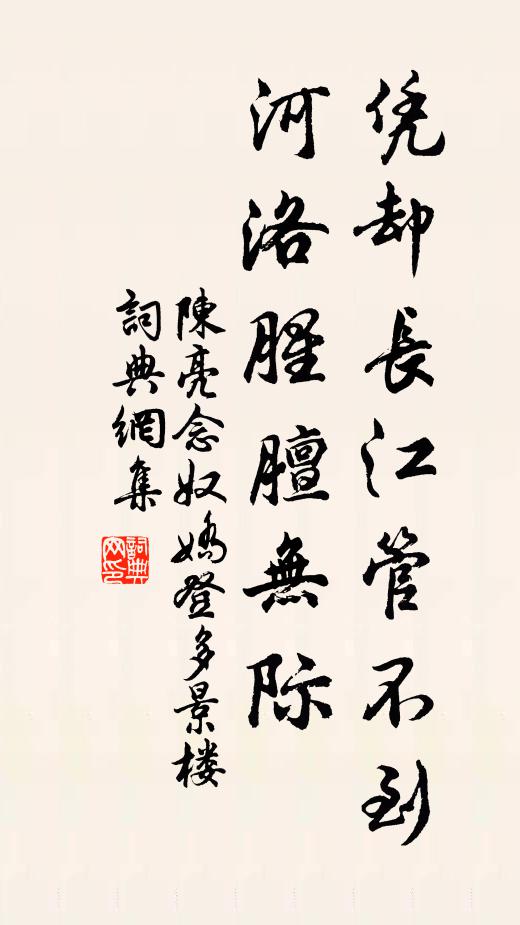 凭却長江管不到
河洛腥膻無际
陳亮念奴嬌登多景楼
詞典網集
詞典网印